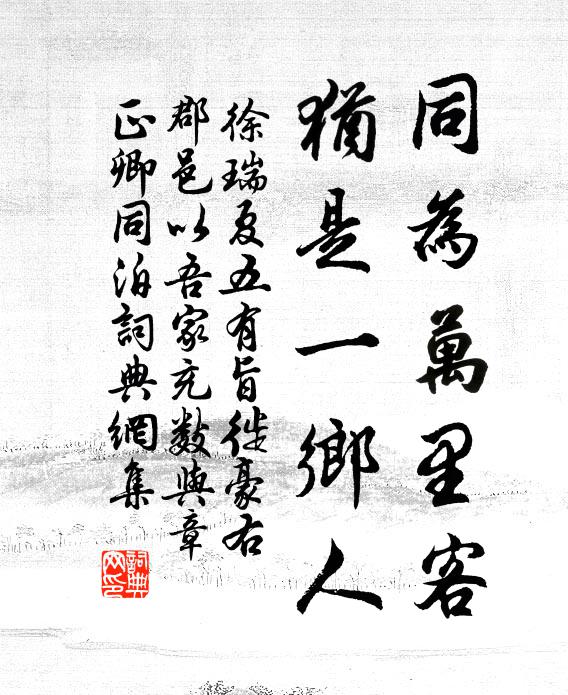 同為萬里客
猶是一鄉人
徐瑞夏五有旨徙豪右
郡邑以吾家充數與章
正卿同泊詞典網集
詞典
网印